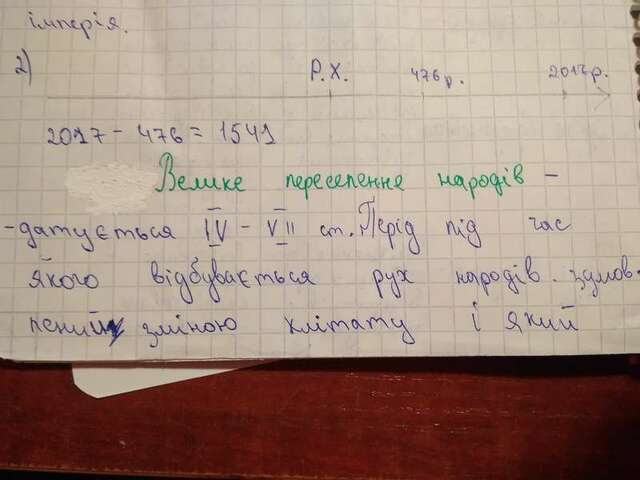 імперія.
2) Р.Х. 476р. 2017р.
2017 - 476 = 1541
Велике переселення народів -
-датується IV - VII ст.Перід під час
якого відбувається рух народів. зумов-
лений зміною клітату і який